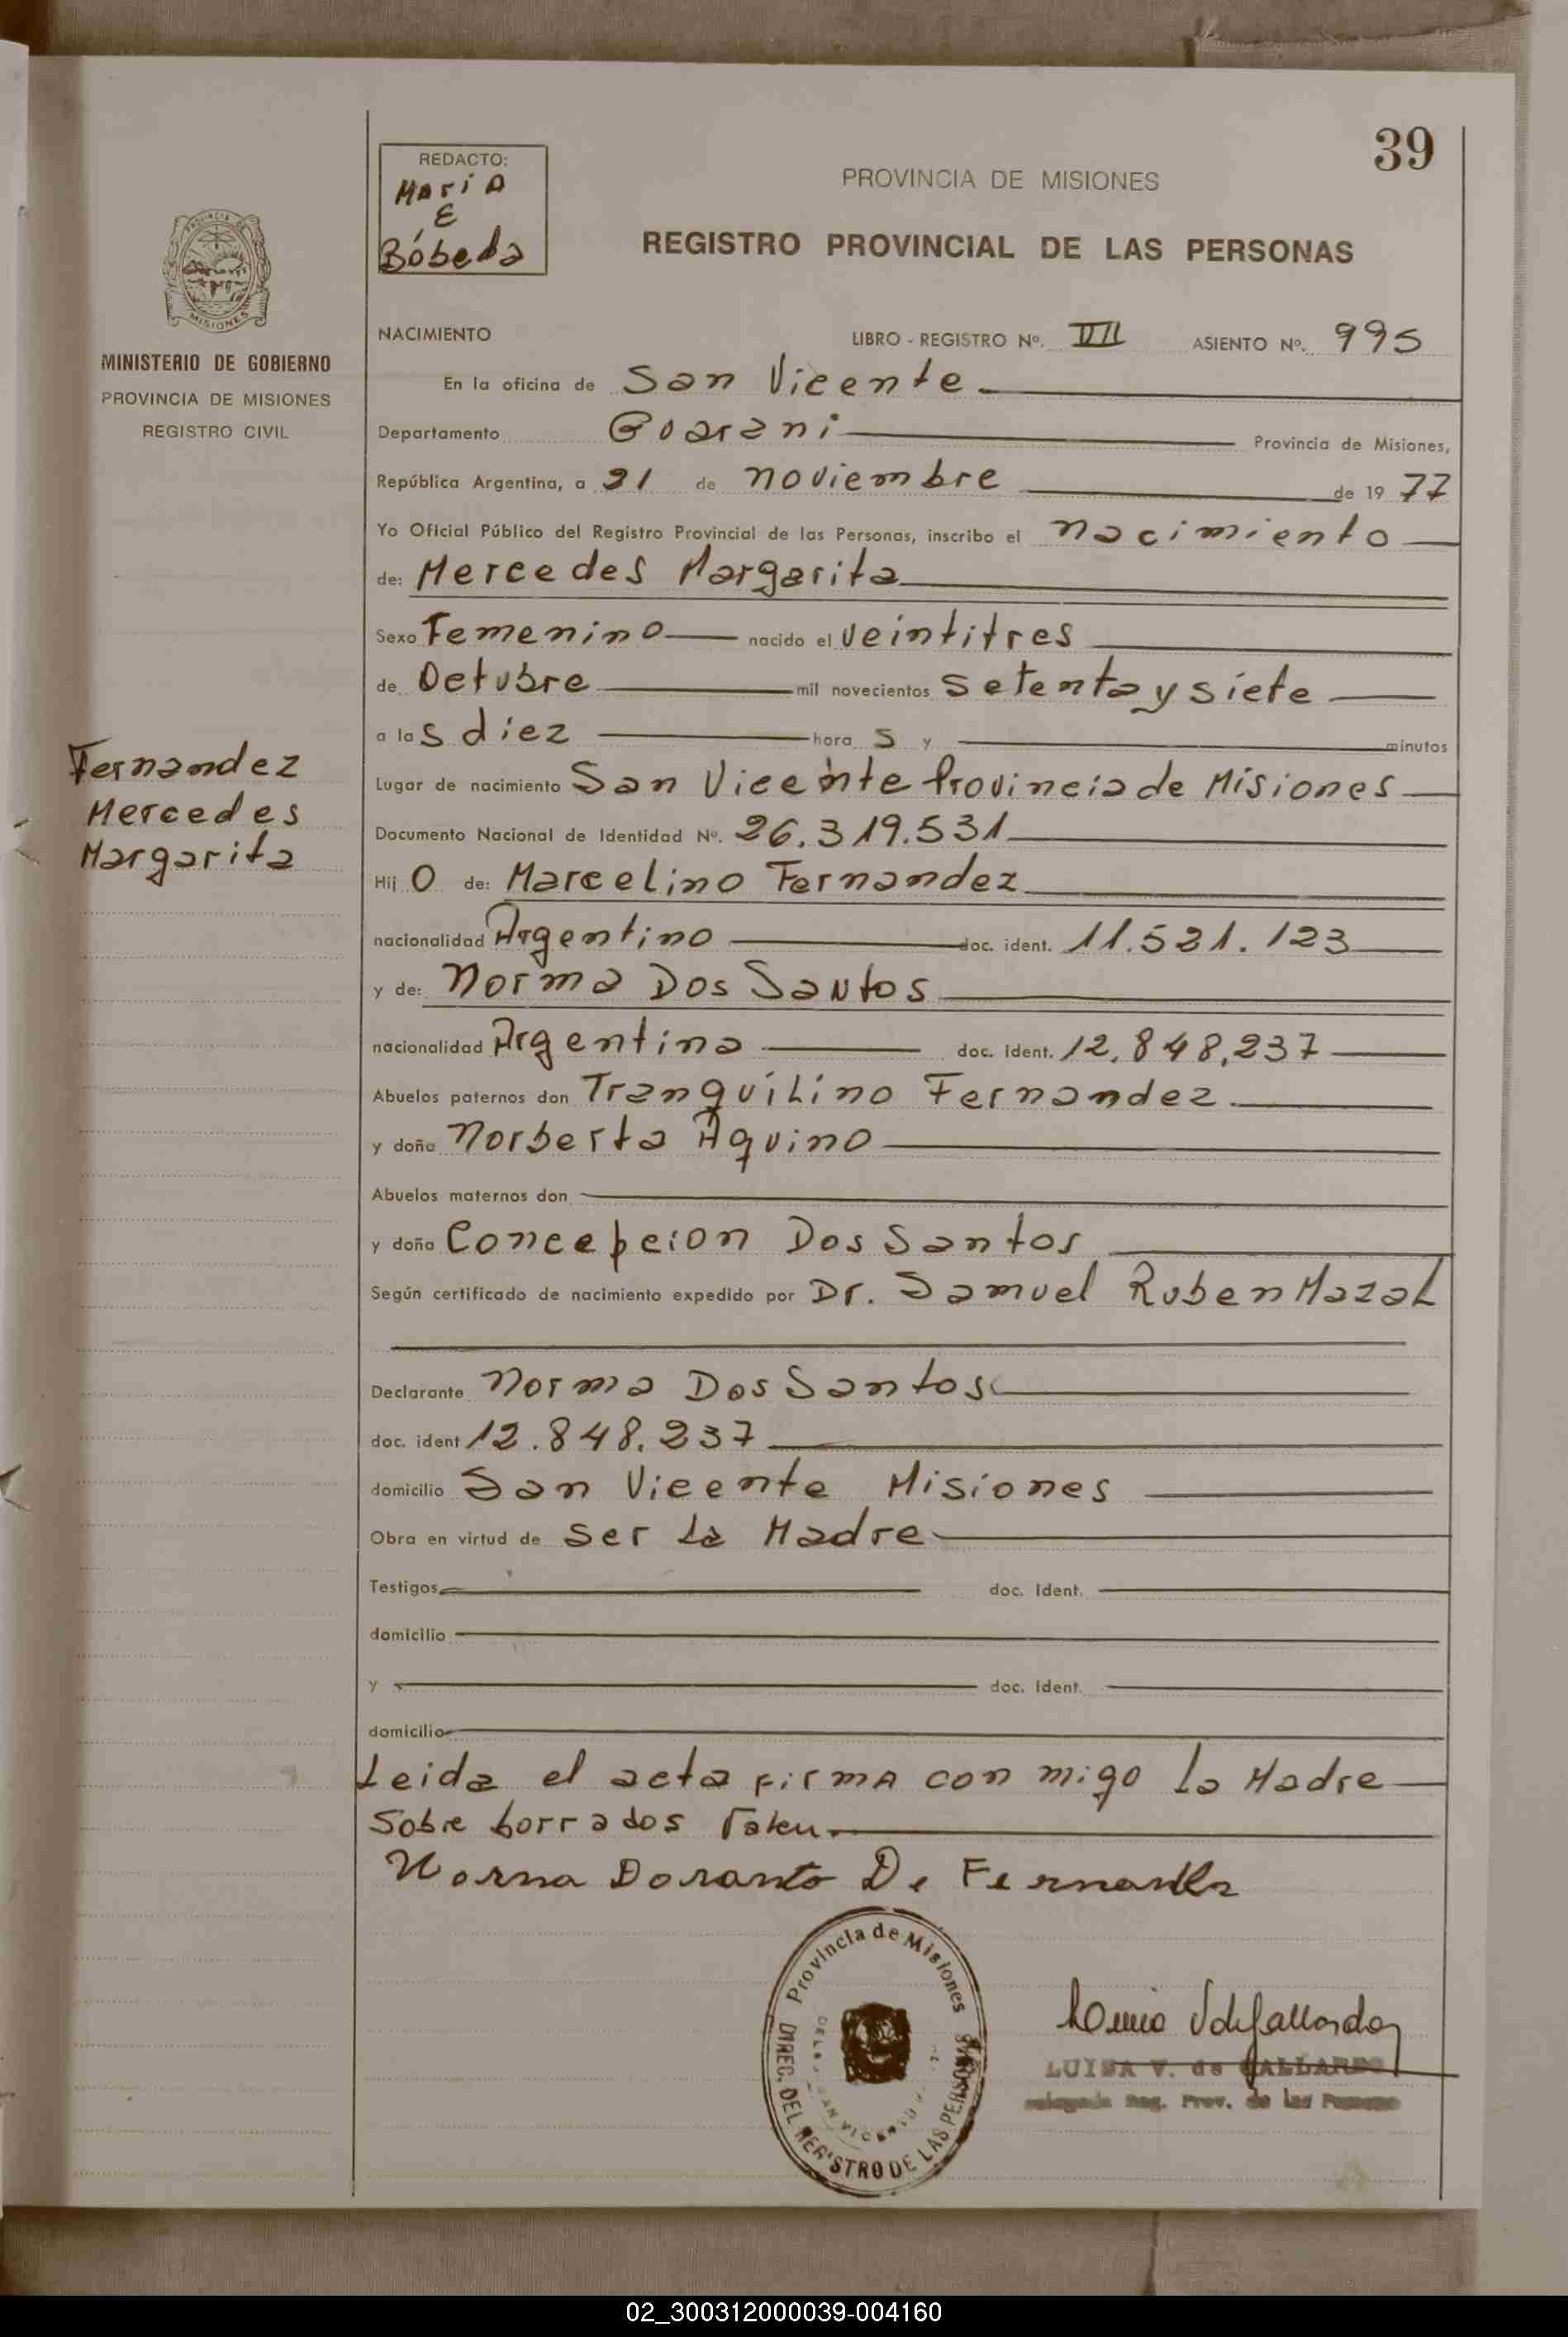 39
REDACTO:
Maria
E
Bóbeda
PROVINCIA DE MISIONES
REGISTRO PROVINCIAL DE LAS PERSONAS
MISIONES
MINISTERIO DE GOBIERNO
PROVINCIA DE MISIONES
REGISTRO CIVIL
NACIMIENTO LIBRO - REGISTRO Nº. VII ASIENTO Nº. 995
En la oficina de San Vicente
Departamento Guarani Provincia de Misiones,
República Argentina, a 21 de noviembre de 19 77
Yo Oficial Público del Registro Provincial de las Personas, inscribo el nacimiento
de: Mercedes Margarita
Sexo Femenino nacido el veintitres
de Octubre mil novecientos setenta y siete
a las diez hora s y minutos
Fernandez
Mercedes
Margarita
Lugar de nacimiento San Vicente Provincia de Misiones
Documento Nacional de Identidad Nº. 26.319.531
Hij O de: Marcelino Fernandez
nacionalidad Argentino doc. ident. 11.521.123
y de: Norma Dos Santos
nacionalidad Argentina doc. ident. 12.848.237
Abuelos paternos don Tranquilino Fernandez
y doña Norberta Aquino
Abuelos maternos don
y doña Concepcion Dos Santos
Según certificado de nacimiento expedido por Dr. Samuel Ruben Mazal
Declarante Norma Dos Santos
doc. ident 12.848.237
domicilio San Vicente Misiones
Obra en virtud de ser la Madre
Testigos doc. ident.
domicilio
y doc. ident.
domicilio
Leida el acta firma con migo la Madre
Sobre borrados Valen.
Norma Dosanto De Fernandez
Provincia de Misiones
DIREC. DEL REGISTRO DE LAS PERSONAS
LUISA V. de GALLARDO
Reg. Prov. de las Personas
02_300312000039-004160